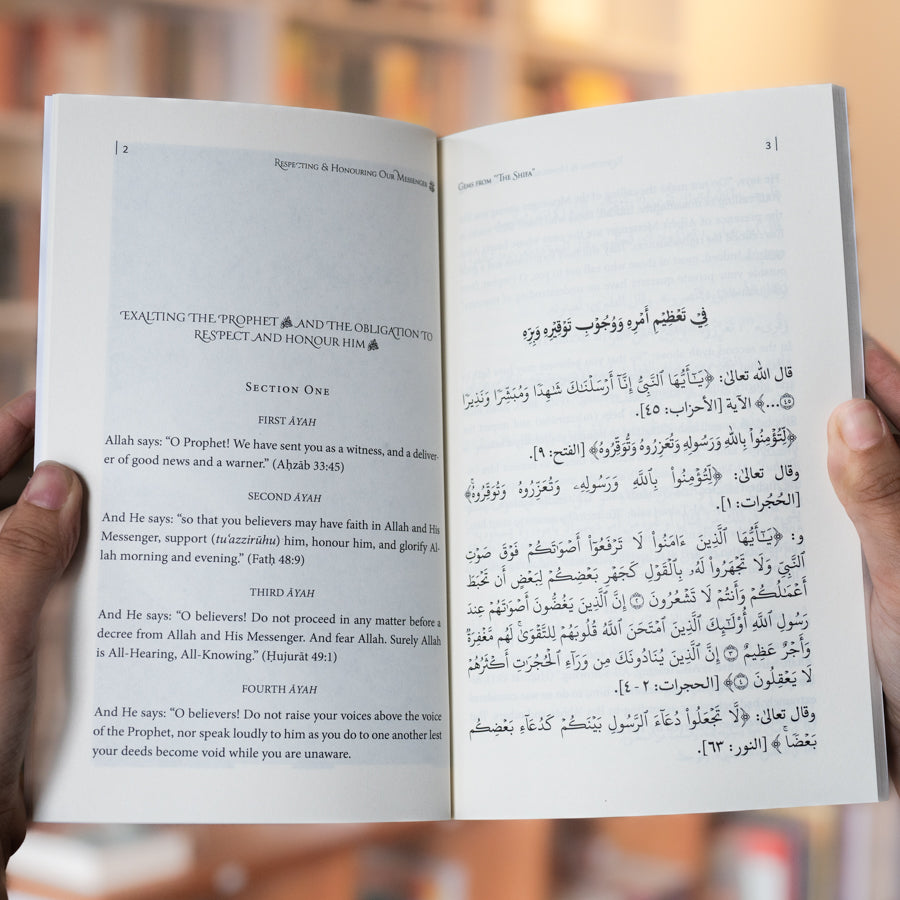 2
RESPECTING & HONOURING OUR MESSENGER ﷺ
EXALTING THE PROPHET ﷺ AND THE OBLIGATION TO
RESPECT AND HONOUR HIM ﷺ
SECTION ONE
FIRST ĀYAH
Allah says: “O Prophet! We have sent you as a witness, and a deliver-
er of good news and a warner.” (Aḥzāb 33:45)
SECOND ĀYAH
And He says: “so that you believers may have faith in Allah and His
Messenger, support (tu'azzirūhu) him, honour him, and glorify Al-
lah morning and evening.” (Fatḥ 48:9)
THIRD ĀYAH
And He says: “O believers! Do not proceed in any matter before a
decree from Allah and His Messenger. And fear Allah. Surely Allah
is All-Hearing, All-Knowing.” (Ḥujurāt 49:1)
FOURTH ĀYAH
And He says: “O believers! Do not raise your voices above the voice
of the Prophet, nor speak loudly to him as you do to one another lest
your deeds become void while you are unaware.
3
GEMS FROM “THE SHIFA”
فِيْ تَعْظِيْمِ أَمْرِهِ وَوُجُوْبِ تَوْقِيْرِهِ وَبِرِّهِ
قال الله تعالىٰ: ﴿يَـٰٓأَيُّهَا ٱلنَّبِيُّ إِنَّآ أَرْسَلْنَـٰكَ شَـٰهِدًا وَمُبَشِّرًا وَنَذِيرًا
۝٤٥...﴾ الآية [الأحزاب: ٤٥].
﴿لِّتُؤْمِنُواْ بِٱللَّهِ وَرَسُولِهِ وَتُعَزِّرُوهُ وَتُوَقِّرُوهُ﴾ [الفتح: ٩].
وقال تعالىٰ: ﴿لِّتُؤْمِنُواْ بِٱللَّهِ وَرَسُولِهِۦ وَتُعَزِّرُوهُ وَتُوَقِّرُوهُۚ﴾
[الحُجُرات: ١].
و: ﴿يَـٰٓأَيُّهَا ٱلَّذِينَ ءَامَنُواْ لَا تَرْفَعُوٓاْ أَصْوَٰتَكُمْ فَوْقَ صَوْتِ
ٱلنَّبِيِّ وَلَا تَجْهَرُواْ لَهُۥ بِٱلْقَوْلِ كَجَهْرِ بَعْضِكُمْ لِبَعْضٍ أَن تَحْبَطَ
أَعْمَـٰلُكُمْ وَأَنتُمْ لَا تَشْعُرُونَ ۝٢ إِنَّ ٱلَّذِينَ يَغُضُّونَ أَصْوَٰتَهُمْ عِندَ
رَسُولِ ٱللَّهِ أُوْلَـٰٓئِكَ ٱلَّذِينَ ٱمْتَحَنَ ٱللَّهُ قُلُوبَهُمْ لِلتَّقْوَىٰۚ لَهُم مَّغْفِرَةٌ
وَأَجْرٌ عَظِيمٌ ۝٣ إِنَّ ٱلَّذِينَ يُنَادُونَكَ مِن وَرَآءِ ٱلْحُجُرَٰتِ أَكْثَرُهُمْ
لَا يَعْقِلُونَ ۝٤﴾ [الحجرات: ٢ - ٤].
وقال تعالىٰ: ﴿لَّا تَجْعَلُواْ دُعَآءَ ٱلرَّسُولِ بَيْنَكُمْ كَدُعَآءِ بَعْضِكُم
بَعْضًاۚ﴾ [النور: ٦٣].